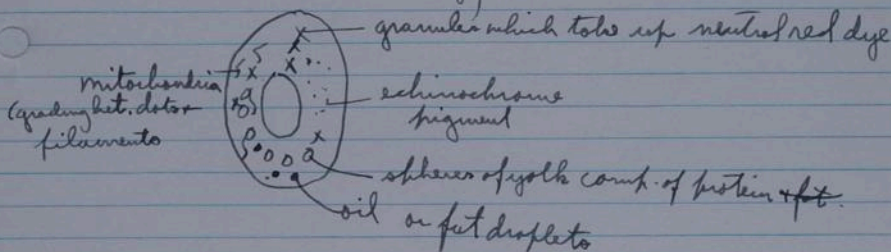 granules which take up neutral red dye
mitochondria
(grading bet. dots +
filaments
echinochrome
pigment
spheres of yolk comp. of protein + fat.
oil or fat droplets